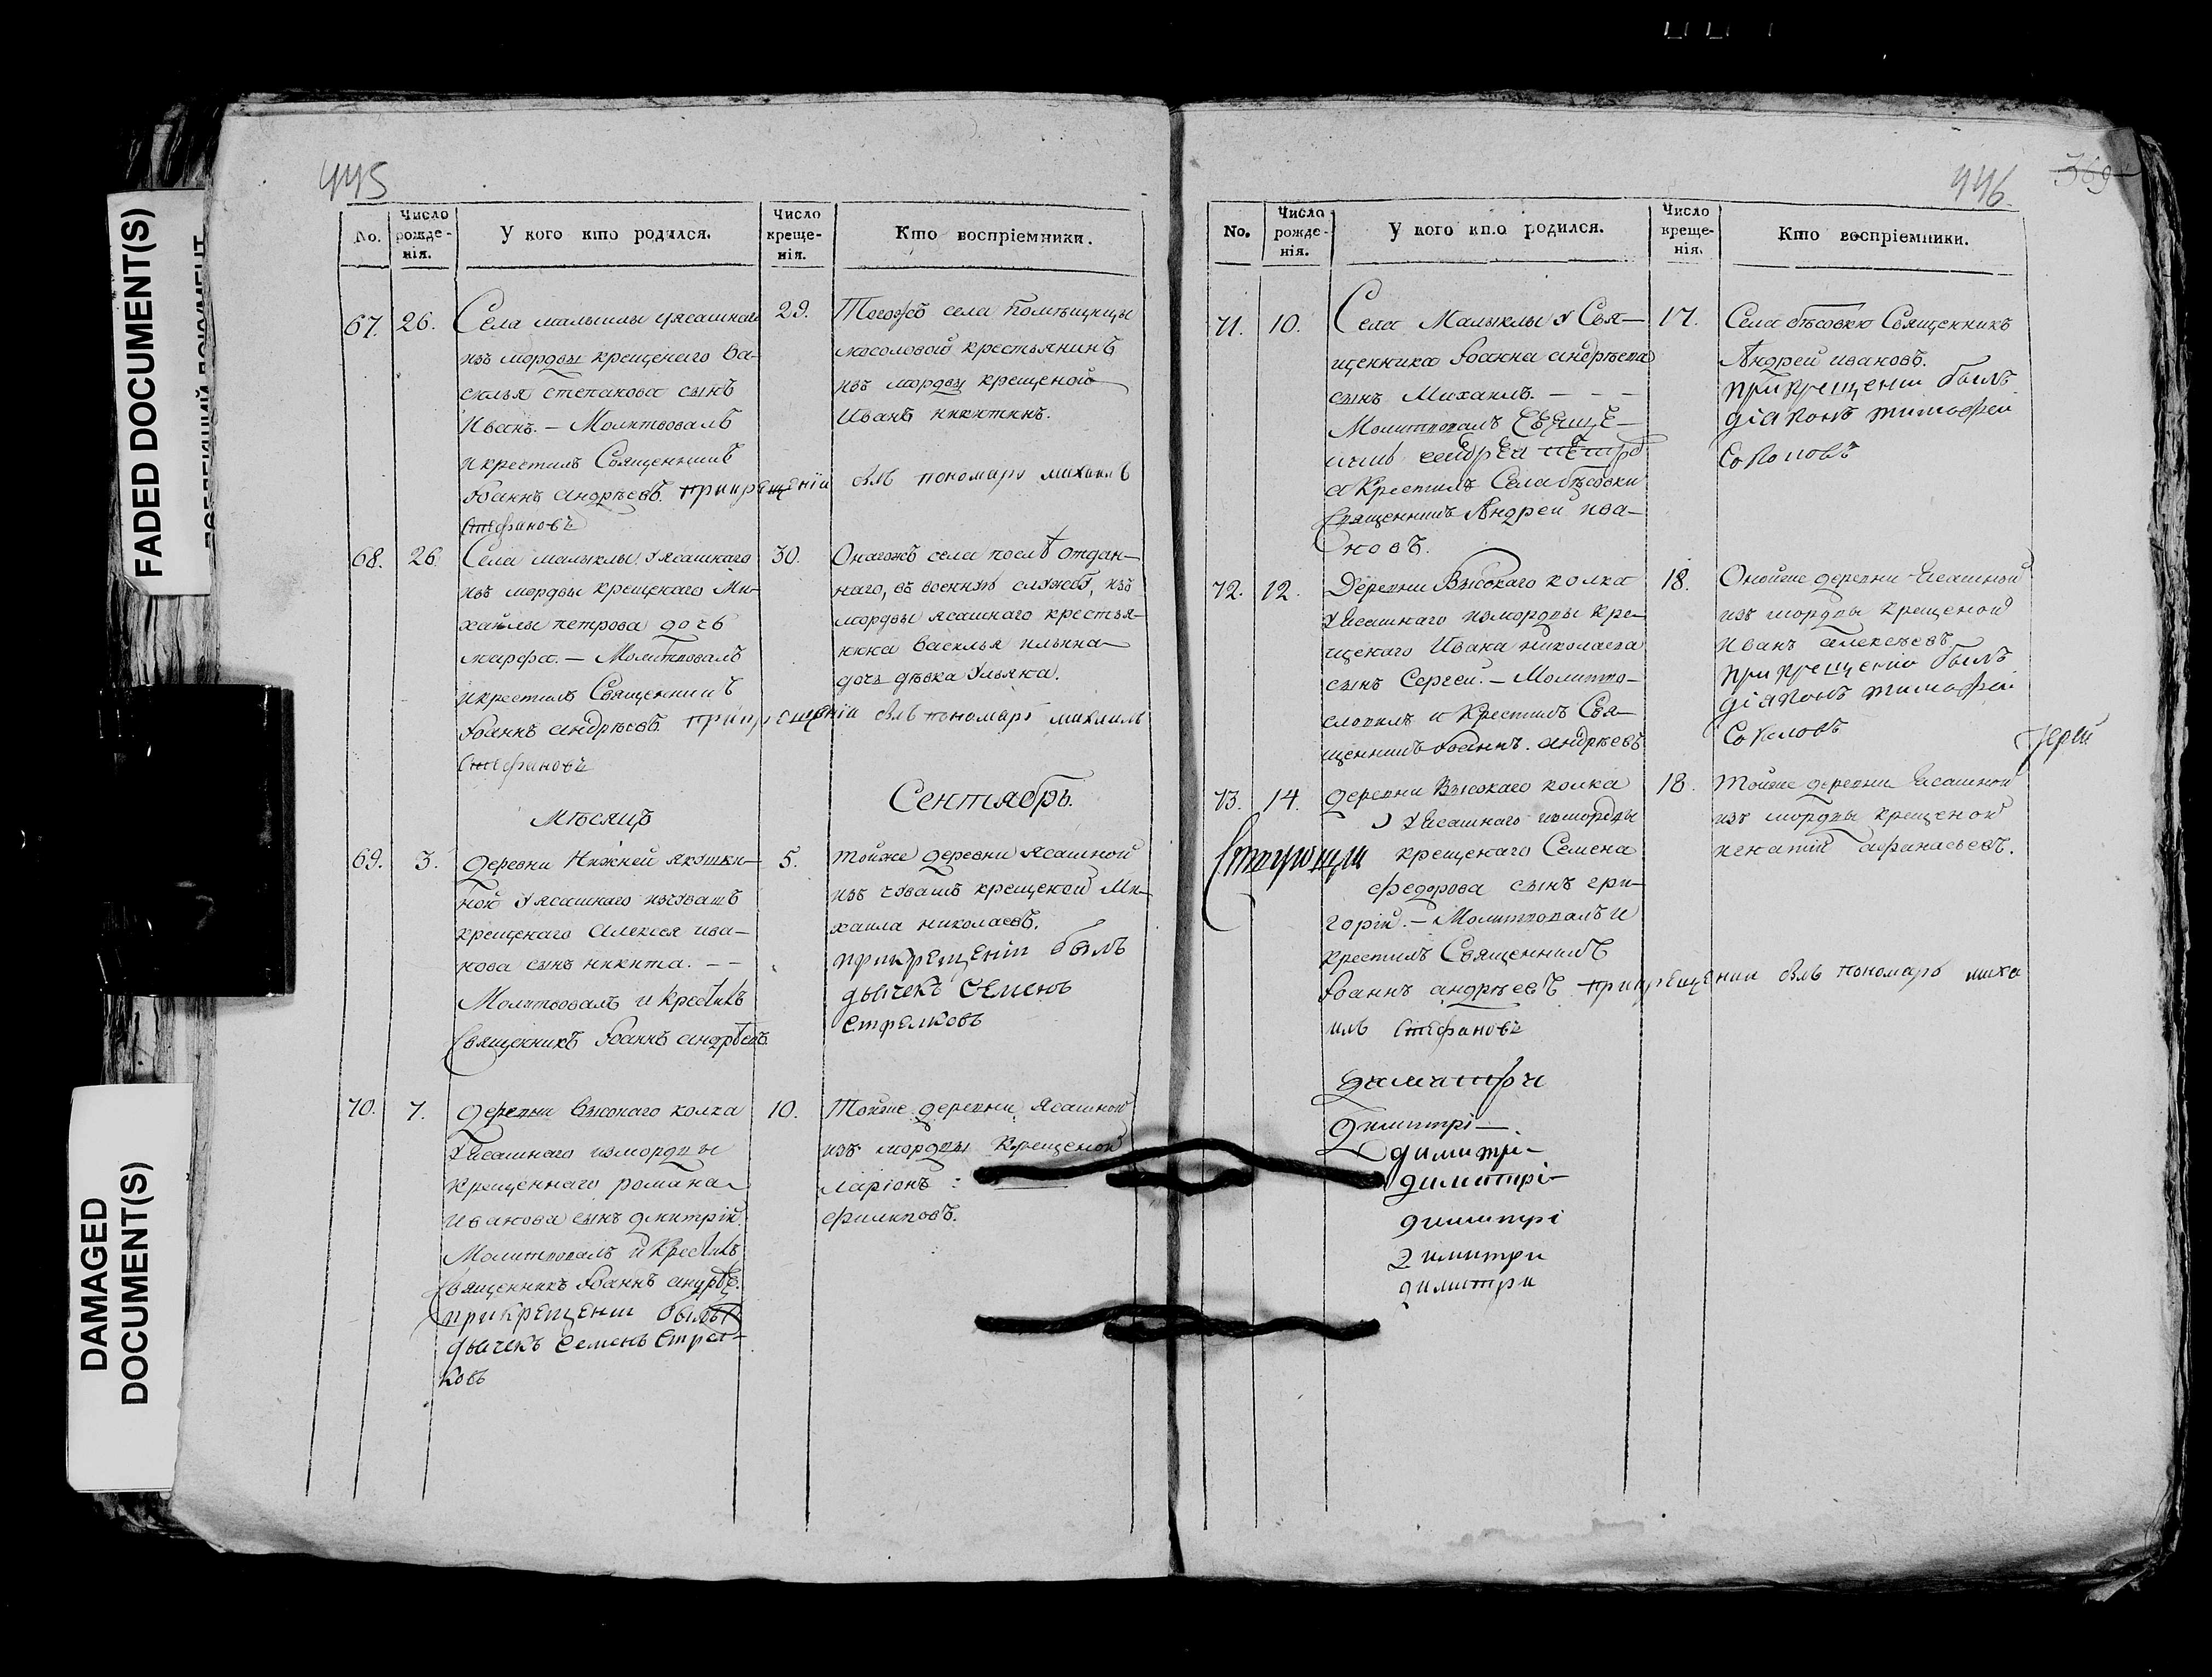 FADED DOCUMENT(S)
DAMAGED
DOCUMENT(S)
445
No.
Число
рожде-
нія.
У кого кто родился.
Число
креще-
нія.
Кто воспріемники.
67.
26.
Села малыклы уясашнаго
изъ мордвы крещенаго ва-
силья степанова сынъ
Иванъ. — Молитвовалъ
икрестилъ Священникъ
Іоаннъ андрѣевъ. прикрещеніи былъ пономарь михаилъ
Стефановъ
29.
Тогожъ села помѣщицы
мосоловой крестьянинъ
изъ мордвы крещеной
Иванъ никитинъ.
68.
26.
Села малыклы уясашнаго
изъ мордвы крещенаго Ми-
хайлы петрова дочь
марфа. — Молитвовалъ
икрестилъ Священникъ
Іоаннъ андрѣевъ. прикрещеніи былъ пономарь михаилъ
Стефановъ
30.
Онагожъ села послѣ отдан-
наго, въ военную службу, изъ
мордвы ясашнаго крестья-
нина василья ильина
дочь дѣвка Ульяна.
Мѣсяцъ
Сентябрь.
69.
3.
Деревни Нижней якушки-
ной уясашнаго изчувашъ
крещенаго Алексея ива-
нова сынъ никита. — —
Молитвовалъ и крестилъ
Священникъ Іоаннъ андрѣевъ.
5.
тойже деревни ясашной
изъ чувашъ крещеной Ми-
хаила николаевъ.
прикрещеніи былъ
дьячекъ Семенъ
Стрелковъ
70.
7.
деревни высокаго колка
уясашнаго измордвы
крещеннаго романа
Иванова сынъ дмитрій.
Молитвовалъ и крестилъ
священникъ Іоаннъ андрѣе.
прикрещени былъ
дьячекъ Семенъ Стрел-
ковъ
10.
Тойже деревни ясашной
изъ мордвы крещеной
ларіонъ :
филиповъ.
446
369
No.
Число
рожде-
нія.
У кого кто родился.
Число
креще-
нія.
Кто воспріемники.
71.
10.
Села Малыклы у Свя-
щенника Іоанна андрѣева
сынъ Михаилъ. — — —
Молитвовалъ
а крестилъ Села бѣсовки
Священникъ Андрей ива-
новъ.
17.
Села бѣсовки Священникъ
Андрей ивановъ.
прикрещени былъ
діаконъ тимофеи
Соколовъ
72.
12.
Деревни Высокаго колка
уясашнаго измордвы кре-
щенаго Ивана николаева
сынъ Сергей. — Молитво-
словилъ и крестилъ Свя-
щенникъ Іоаннъ андрѣевъ
18.
Онойже деревни Ясашной
изъ мордвы крещеной
иванъ алексѣевъ
прикрещеніи былъ
діаконъ тимофеи
Соколовъ
Іерей
73.
14.
деревни Высокаго колка
уясашнаго измордвы
крещенаго Семена
федорова сынъ гри-
горій. — Молитвовалъ и
крестилъ Священникъ
Іоаннъ андрѣевъ прикрещении былъ пономарь миха
илъ Стефановъ
18.
Тойже деревни Ясашной
изъ мордвы крещеной
игнатій афанасьевъ.
Димитрі —
димитрі —
димитрі —
димитрі
димитри
димитри